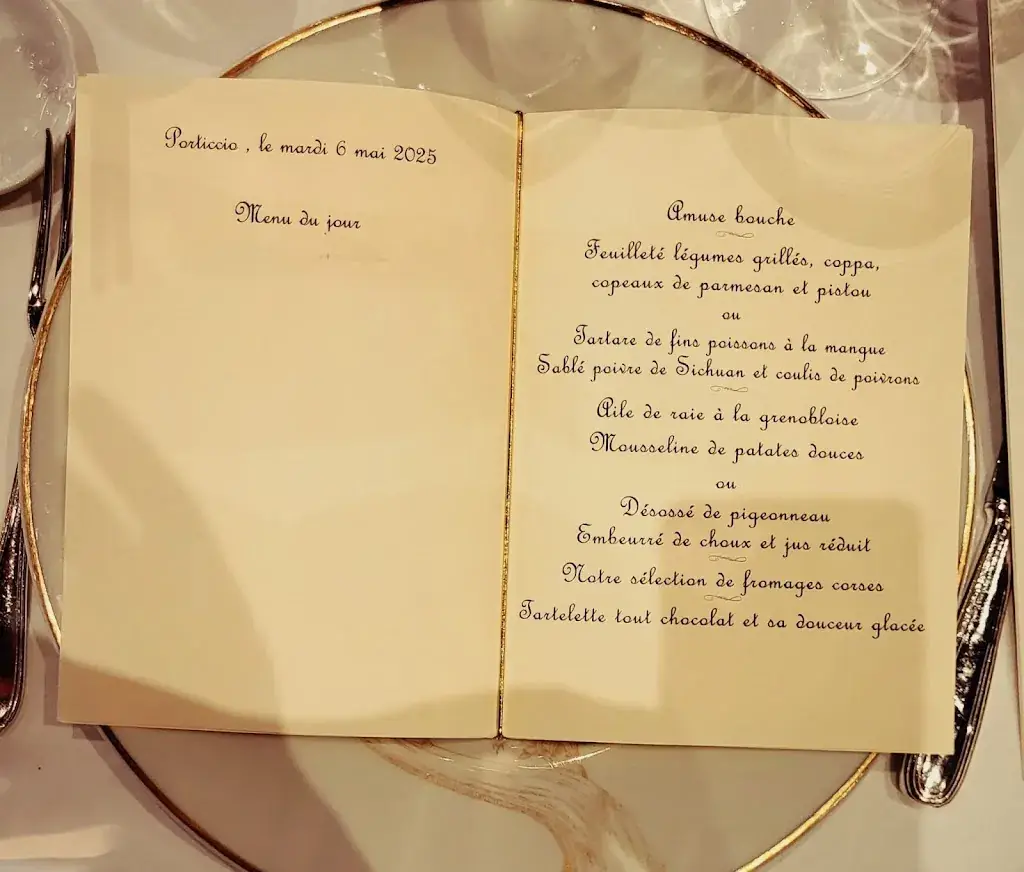 Porticcio , le mardi 6 mai 2025
Menu du jour
Amuse bouche
Feuilleté légumes grillés, coppa,
copeaux de parmesan et pistou
ou
Tartare de fins poissons à la mangue
Sablé poivre de Sichuan et coulis de poivrons
Aile de raie à la grenobloise
Mousseline de patates douces
ou
Désossé de pigeonneau
Embeurré de choux et jus réduit
Notre sélection de fromages corses
Tartelette tout chocolat et sa douceur glacée